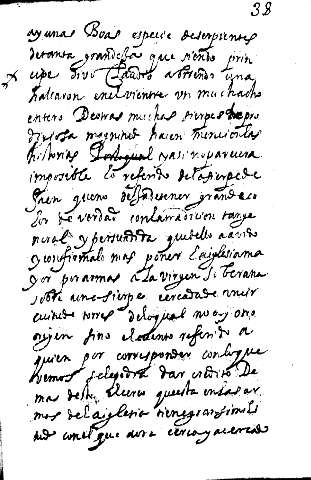 38
ay unas Boas especie de serpientes
de tanta grandessa que siendo prin
cipe divo Claudio abriendo una
hallaron en el vientre un muchacho
entero De otras muchas sierpes de pro
digiosa magnitud hacen mencion las
historias Por lo qual y asi no parecera
imposible lo referido de la sierpe de
Jaen que no deja de tener grande co
lor de verdad con la tradicion tan ge
neral y persuadida que dello a avido
y confirmalo mas poner la iglesia ma
yor por armas a la Virgen soberana
sobre una sierpe cercada de un cir
cuito de torres de lo qual no ay otro
origen sino el cuento referido a
quien por corresponder con lo que
vemos se le podra dar credito De
mas desto el cerco questa en las ar
mas de la iglesia tiene gran simili
tud con el que avia cerca y acercado